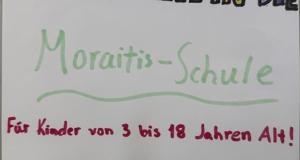 Moraitis-Schule
Für Kinder von 3 bis 18 Jahren Alt!